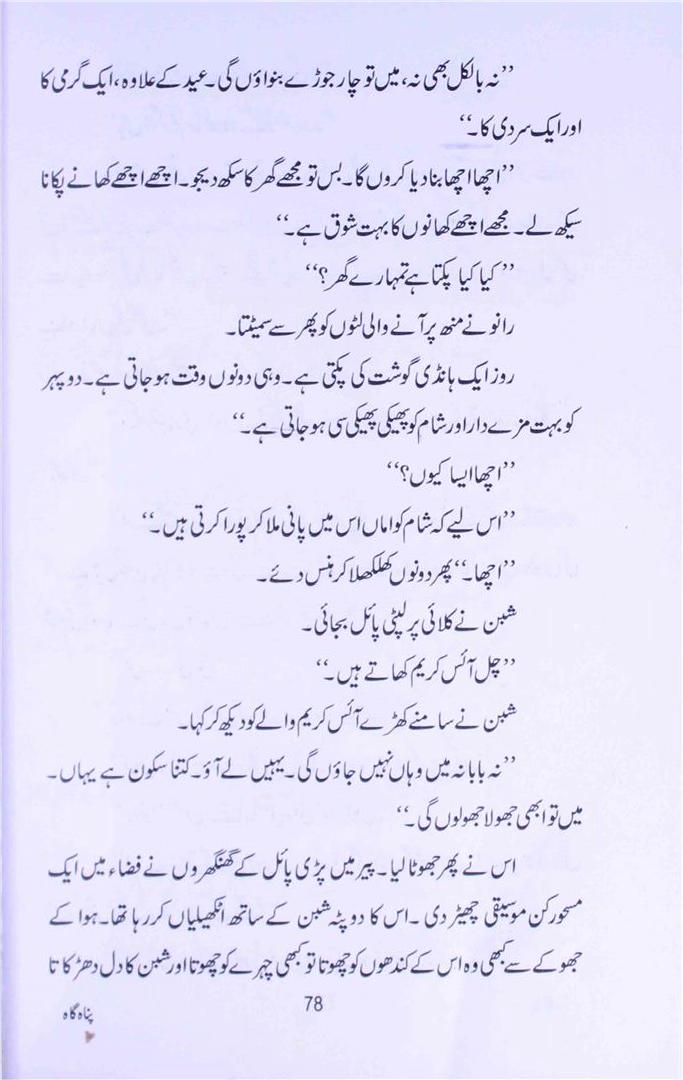 ’’نہ بالکل بھی نہ، میں تو چار جوڑے بنواؤں گی۔ عید کے علاوہ، ایک گرمی کا
اور ایک سردی کا۔‘‘
’’اچھا اچھا بنا دیا کروں گا۔ بس تو مجھے گھر کا سکھ دیجو۔ اچھے اچھے کھانے پکانا
سیکھ لے۔ مجھے اچھے کھانوں کا بہت شوق ہے۔‘‘
’’کیا کیا پکتا ہے تمہارے گھر؟‘‘
رانو نے منھ پر آنے والی لٹوں کو پھر سے سمیٹتا۔
روز ایک ہانڈی گوشت کی پکتی ہے۔ وہی دونوں وقت ہو جاتی ہے۔ دوپہر
کو بہت مزے دار اور شام کو پھیکی پھیکی سی ہو جاتی ہے۔‘‘
’’اچھا ایسا کیوں؟‘‘
’’اس لیے کہ شام کو اماں اس میں پانی ملا کر پورا کرتی ہیں۔‘‘
’’اچھا۔‘‘ پھر دونوں کھلکھلا کر ہنس دئے۔
شبن نے کلائی پر لپٹی پائل بجائی۔
’’چل آئس کریم کھاتے ہیں۔‘‘
شبن نے سامنے کھڑے آئس کریم والے کو دیکھ کر کہا۔
’’نہ بابا نہ میں وہاں نہیں جاؤں گی۔ یہیں لے آؤ۔ کتنا سکون ہے یہاں۔
میں تو ابھی جھولا جھولوں گی۔‘‘
اس نے پھر جھوٹا لیا۔ پیر میں پڑی پائل کے گھنگھروں نے فضاء میں ایک
مسحور کن موسیقی چھیڑ دی۔ اس کا دوپٹہ شبن کے ساتھ اٹھیلیاں کر رہا تھا۔ ہوا کے
جھوکے سے کبھی وہ اس کے کندھوں کو چھوتا تو کبھی چہرے کو چھوتا اور شبن کا دل دھڑکا تا
78
پناہ گاہ